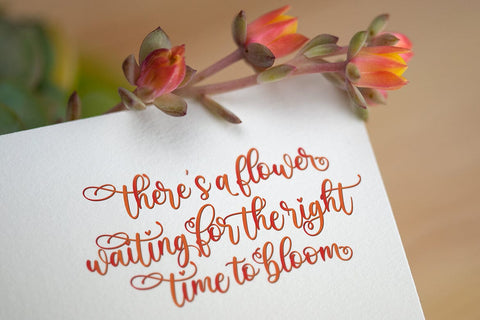 there's a flower
waiting for the right
time to bloom